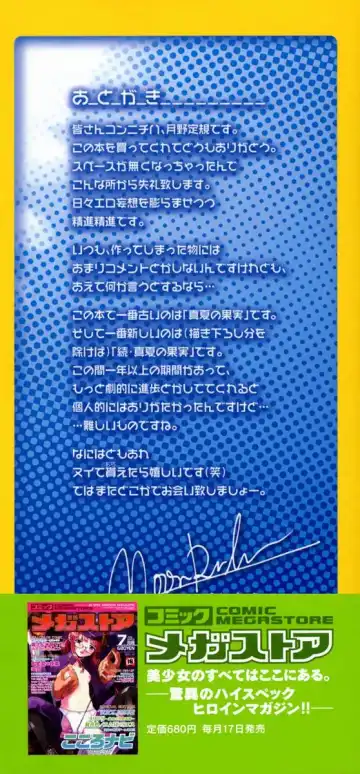 あ_と_が_き_ _ _ _ _ _ _ _ _
皆さんコンニチハ、月野定規です。
この本を買ってくれてどうもありがとう。
スペースが無くなっちゃったんで
こんな所から失礼致します。
日々エロ妄想を膨らませつつ
精進精進です。
いつも、作ってしまった物には
あまりコメントとかしないんですけれども、
あえて何か言うとするなら…
この本で一番古いのは「真夏の果実」です。
そして一番新しいのは（描き下ろし分を
除けば）「続・真夏の果実」です。
この間一年以上の期間があって、
もっと劇的に進歩とかしててくれると
個人的にはありがたかったんですけど…
…難しいものですね。
なにはともあれ
ヌイて貰えたら嬉しいです（笑）
ではまたどこかでお会い致しましょー。
コミック
COMIC
MEGASTORE
メガストア
美少女のすべてはここにある。
──驚異のハイスペック
ヒロインマガジン!!──
定価680円 毎月17日発売
コミック
メガストア
7
こころナビ